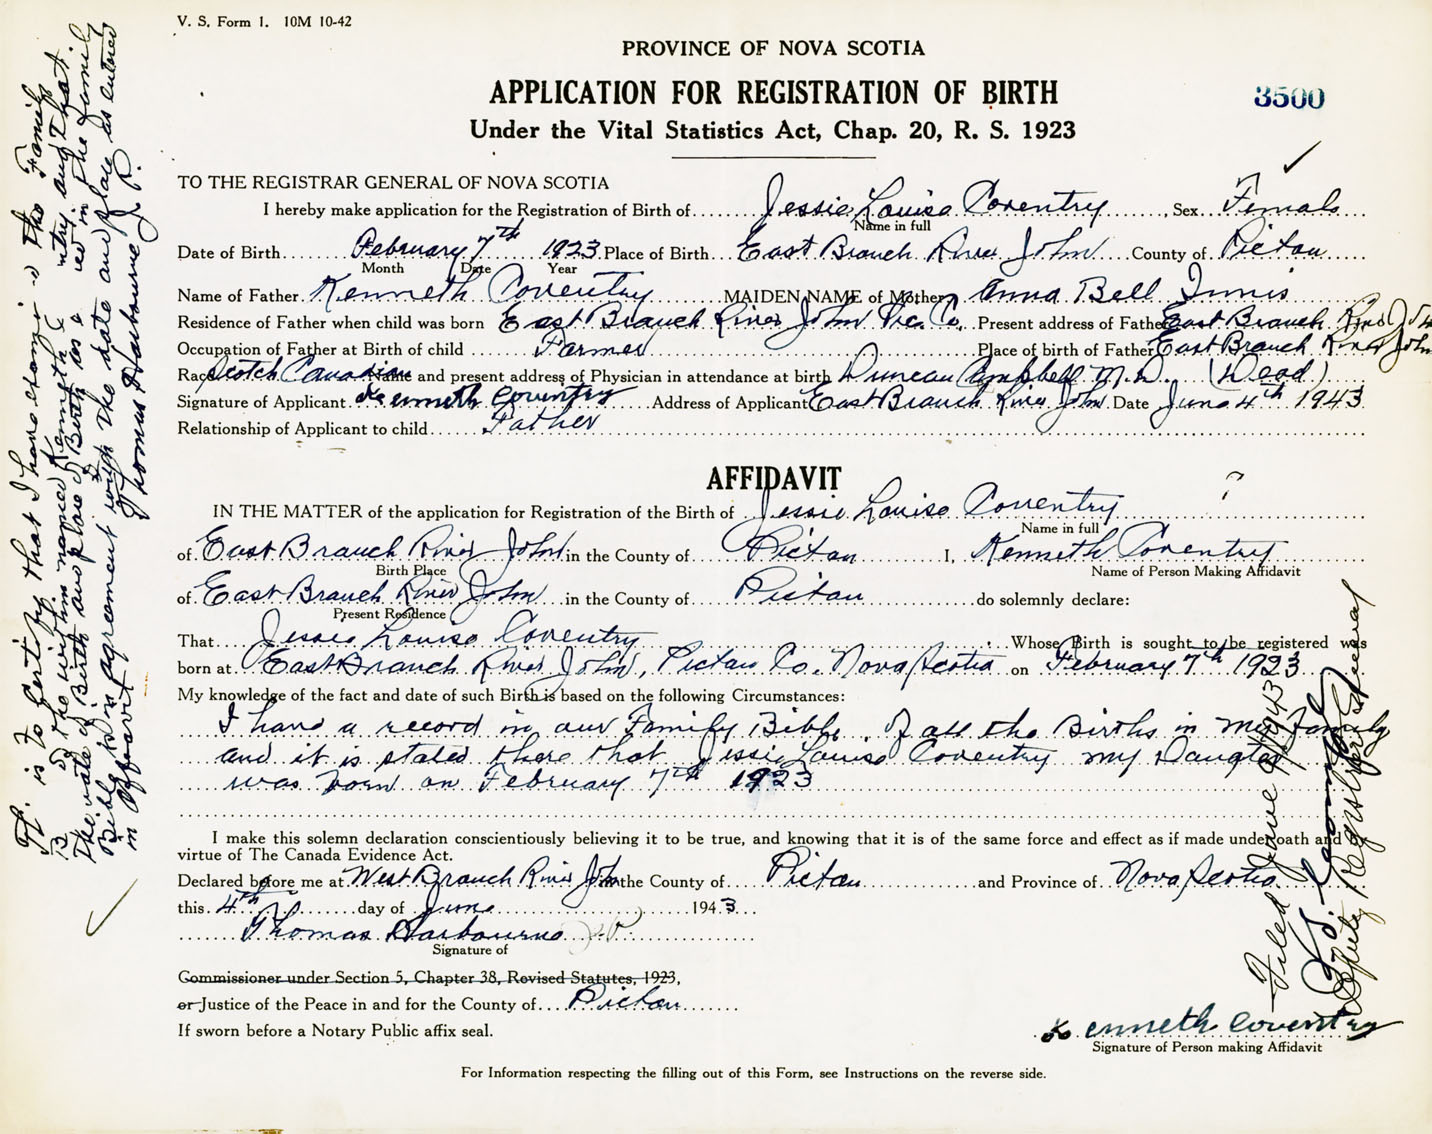 V. S. Form 1. 10M 10-42
PROVINCE OF NOVA SCOTIA
APPLICATION FOR REGISTRATION OF BIRTH
3500
Under the Vital Statistics Act, Chap. 20, R. S. 1923
TO THE REGISTRAR GENERAL OF NOVA SCOTIA
I hereby make application for the Registration of Birth of Jessie Louise Coventry, Sex Female
Name in full
Date of Birth February 7th 1923 Place of Birth East Branch River John County of Pictou
Month Date Year
Name of Father Kenneth Coventry MAIDEN NAME of Mother Anna Bell Innis
Residence of Father when child was born East Branch River John Pic. Co. Present address of Father East Branch River John
Occupation of Father at Birth of child Farmer Place of birth of Father East Branch River John
Race Scotch Canadian Name and present address of Physician in attendance at birth Duncan Campbell M.D. (Dead)
Signature of Applicant Kenneth Coventry Address of Applicant East Branch River John Date June 4th 1943
Relationship of Applicant to child Father
AFFIDAVIT
IN THE MATTER of the application for Registration of the Birth of Jessie Louise Coventry
Name in full
of East Branch River John in the County of Pictou I, Kenneth Coventry
Birth Place Name of Person Making Affidavit
of East Branch River John in the County of Pictou do solemnly declare:
Present Residence
That Jessie Louise Coventry Whose Birth is sought to be registered was
born at East Branch River John, Pictou Co. Nova Scotia on February 7th 1923
My knowledge of the fact and date of such Birth is based on the following Circumstances:
I have a record in our Family Bible, of all the Births in my family
and it is stated there that Jessie Louise Coventry my Daughter
was born on February 7th 1923
I make this solemn declaration conscientiously believing it to be true, and knowing that it is of the same force and effect as if made under oath and
virtue of The Canada Evidence Act.
Declared before me at West Branch River John in the County of Pictou and Province of Nova Scotia
this 4th day of June 1943
Thomas Harbourne J.P.
Signature of
Commissioner under Section 5, Chapter 38, Revised Statutes, 1923,
or Justice of the Peace in and for the County of Pictou
If sworn before a Notary Public affix seal.
Kenneth Coventry
Signature of Person making Affidavit
For Information respecting the filling out of this Form, see Instructions on the reverse side.
is to certify that I have the Family
the within named Kenneth and that
The date of Birth and place of Birth as in the family
Bible is in agreement with the date and place as entered
in affidavit Thomas Harbourne J. P.
Filed June 1943
Deputy Registrar General